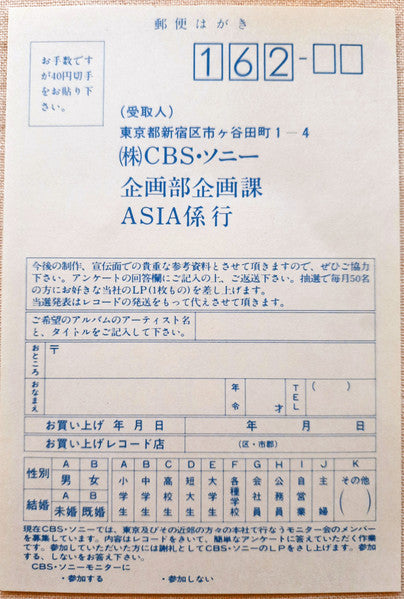 郵便はがき
お手数です
が40円切手
をお貼り下
さい。
162-
(受取人)
東京都新宿区市ヶ谷田町1-4
(株)CBS・ソニー
企画部企画課
ASIA係行
今後の制作、宣伝面での貴重な参考資料とさせて頂きますので、ぜひご協力
下さい。アンケートの回答欄にご記入の上、ご返送下さい。抽選で毎月50名
の方にお好きな当社のLP(1枚もの)を差し上げます。
当選発表はレコードの発送をもって代えさせて頂きます。
ご希望のアルバムのアーティスト名
と、タイトルをご記入して下さい。
おところ 〒
おなまえ 年令 才 TEL ( )
お買い上げ 年 月 日 年 月 日
お買い上げレコード店 (区・市郡)
性別 A 男 B 女
結婚 A 未婚 B 既婚
A 小学生 B 中学生 C 高校生 D 短大生 E 大学生 F 各種学校 G 会社員 H 公務員 I 自営業 J 主婦 K その他 ( )
現在CBS・ソニーでは、東京及びその近郊の方々の本社で行なうモニター会のメンバー
を募集しています。内容はレコードをきいて、簡単なアンケートに答えていただく作業
です。参加していただいた方には謝礼としてCBS・ソニーのLPをさし上げます。参加
する、しないをお答え下さい。
CBS・ソニーモニターに
・参加する ・参加しない